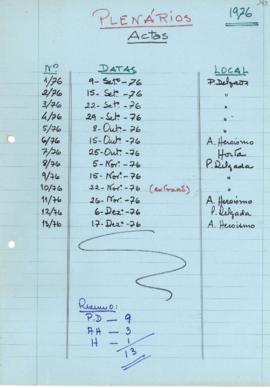 1976
PLENÁRIOS
Actas
Nº DATAS LOCAL
1/76 9-Setº-76 P. Delgada
2/76 15-Setº-76 "
3/76 22-Setº-76 "
4/76 29-Setº-76 "
5/76 8-Outº-76 "
6/76 15-Outº-76 A. Heroísmo
7/76 25-Outº-76 Horta
8/76 5-Novº-76 P. Delgada
9/76 15-Novº-76 "
10/76 22-Novº-76 "
11/76 26-Novº-76 A. Heroísmo
12/76 6-Dezº-76 P. Delgada
13/76 17-Dezº-76 A. Heroísmo
Resumo:
P.D — 9
AH — 3
H — 1
13